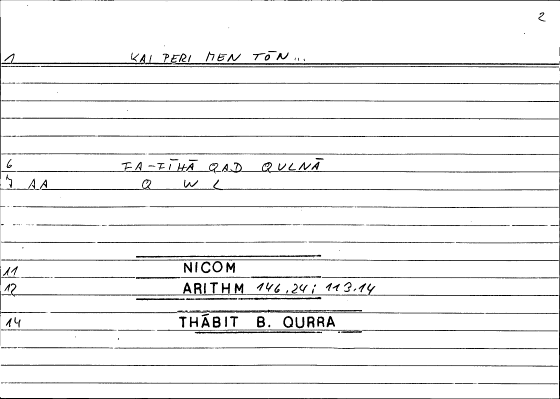 2
1 KAI PERI MEN TŌN...
6 FA-FĪHĀ QAD QULNĀ
7 AA Q W L
11 NICOM
12 ARITHM 146.24; 113.14
14 THĀBIT B. QURRA